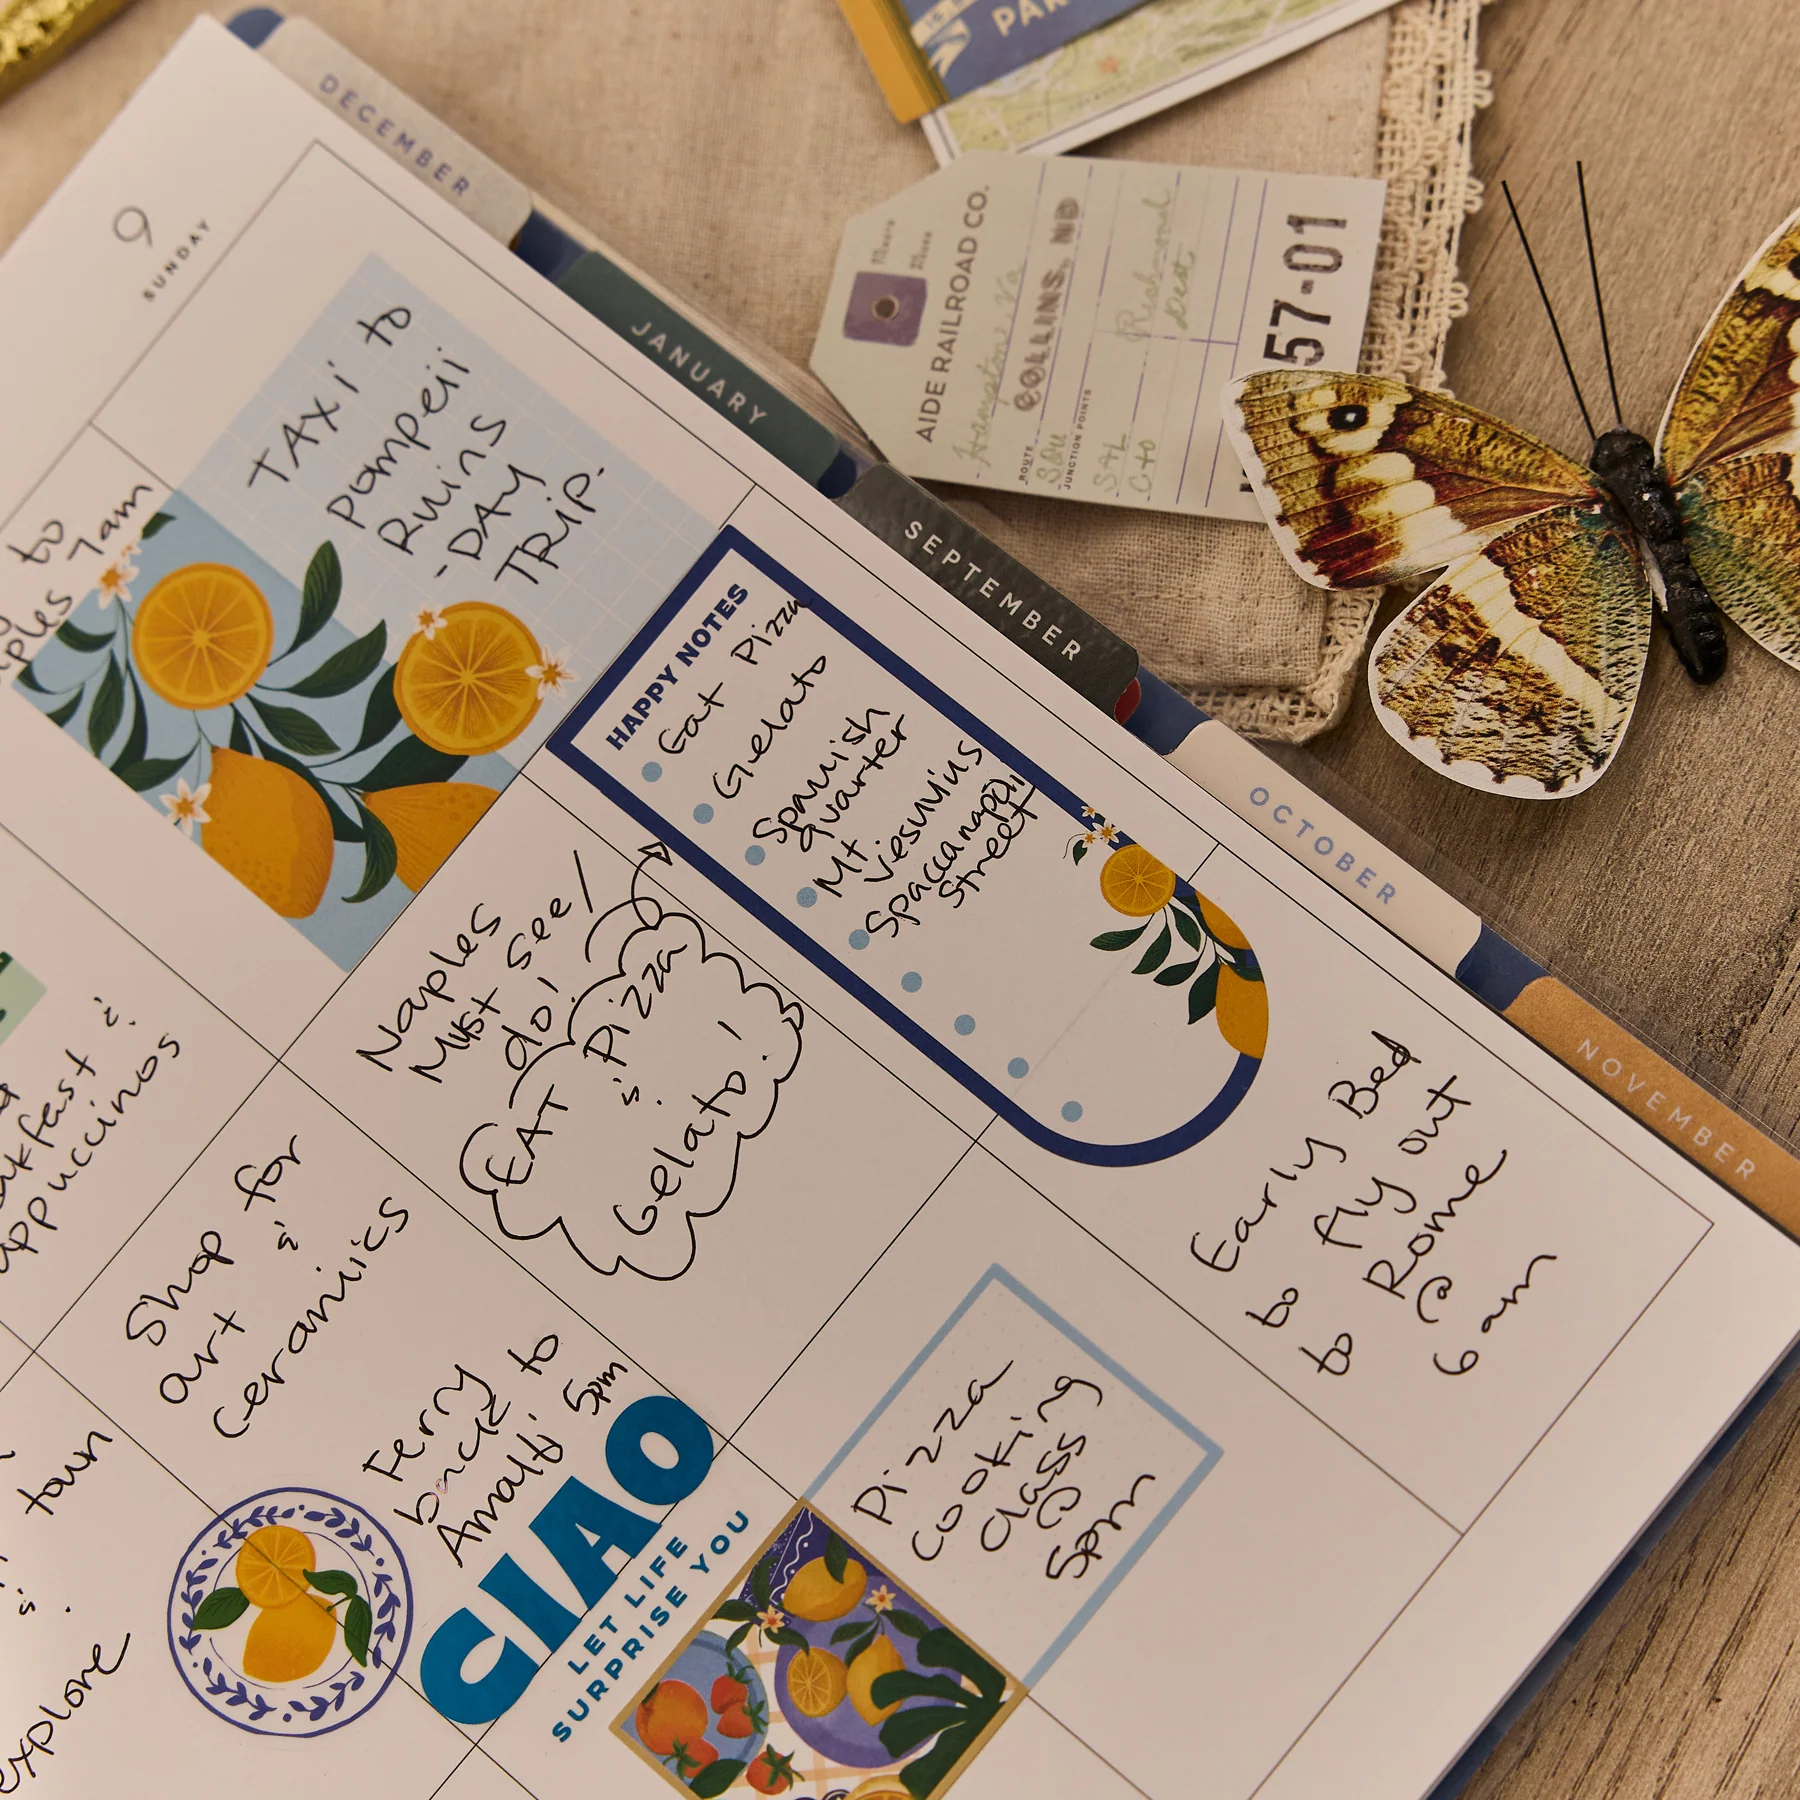 9
SUNDAY
DECEMBER
JANUARY
SEPTEMBER
OCTOBER
NOVEMBER
TAXI to
pompeii
Ruins
-DAY
TRIP.
to
7am
HAPPY NOTES
Eat Pizza
Gelato
Spanish
quarter
Mt
Viesuvius
Spaccanappli
Street
Naples
Must see/
do!
EAT Pizza
&
Gelato!
Early Bed
to fly out
to Rome
@
6am
Shop for
art &
ceramics
Ferry
back to
Amalfi 5pm
CIAO
LET LIFE
SURPRISE YOU
Pizza
cooking
class
@
5pm
town
&
explore
AIDE RAILROAD CO.
COLLINS, ND
ROUTE
JUNCTION POINTS
Richmond
57-01